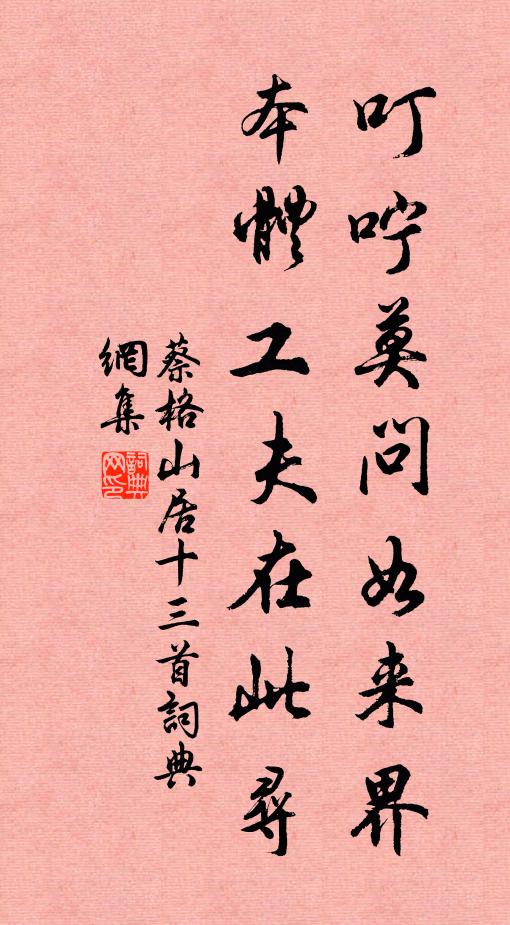 叮咛莫问如来界
本體工夫在此尋
蔡格山居十三首詞典
網集
詞典网印